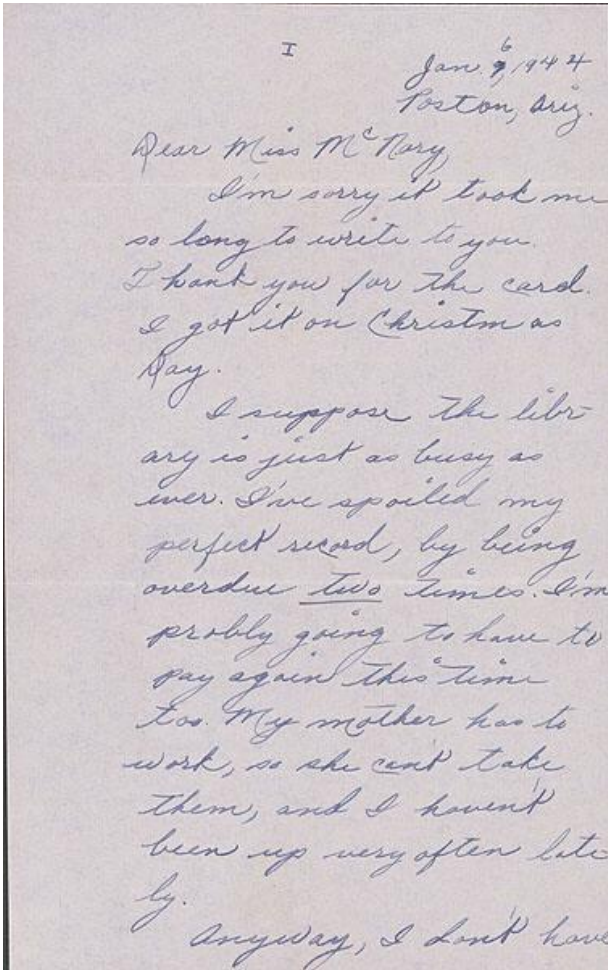 I
Jan. 6, 1944
Poston, Ariz.
Dear Miss McNary,
I'm sorry it took me
so long to write to you.
Thank you for the card.
I got it on Christmas
Day.
I suppose the libr-
ary is just as busy as
ever. I've spoiled my
perfect record, by being
overdue two times. I'm
probly going to have to
pay again this time
too. My mother has to
work, so she can't take
them, and I haven't
been up very often late-
ly.
Anyway, I don't have